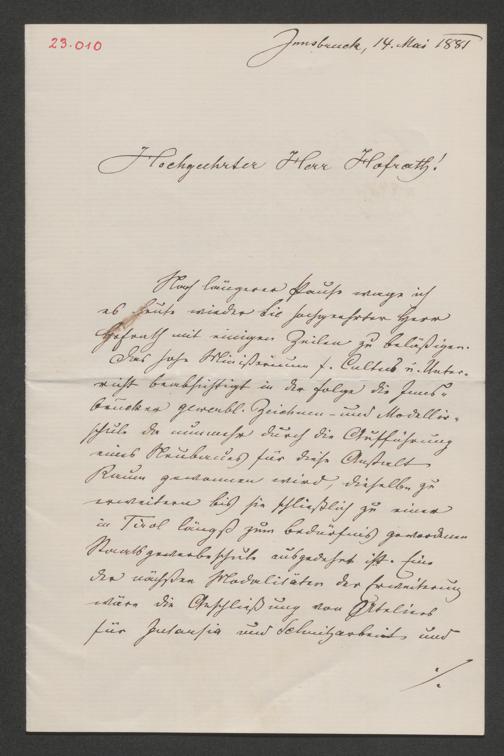 23.010
Innsbruck, 14. Mai 1881
Hochgeehrter Herr Hofrath!
Nach längerer Pause wage ich
es heute wieder Sie hochgeehrter Herr
Hofrath mit einigen Zeilen zu belästigen.
Das hohe Ministerium f. Cultus u. Unter-
richt beabsichtigt in der Folge die Inns-
brucker gewerbl. Zeichnen- und Modellir-
schule da nunmehr durch die Aufführung
eines Neubaues für diese Anstalt
Raum gewonnen wird, dieselbe zu
erweitern bis sie schließlich zu einer
in Tirol längst zum Bedürfnis gewordenen
Staatsgewerbeschule ausgedehnt ist. Eine
der nächsten Modalitäten der Erweiterung
wäre die Anschließung von Ateliers
für Intarsia und Schnitzarbeit und
./.